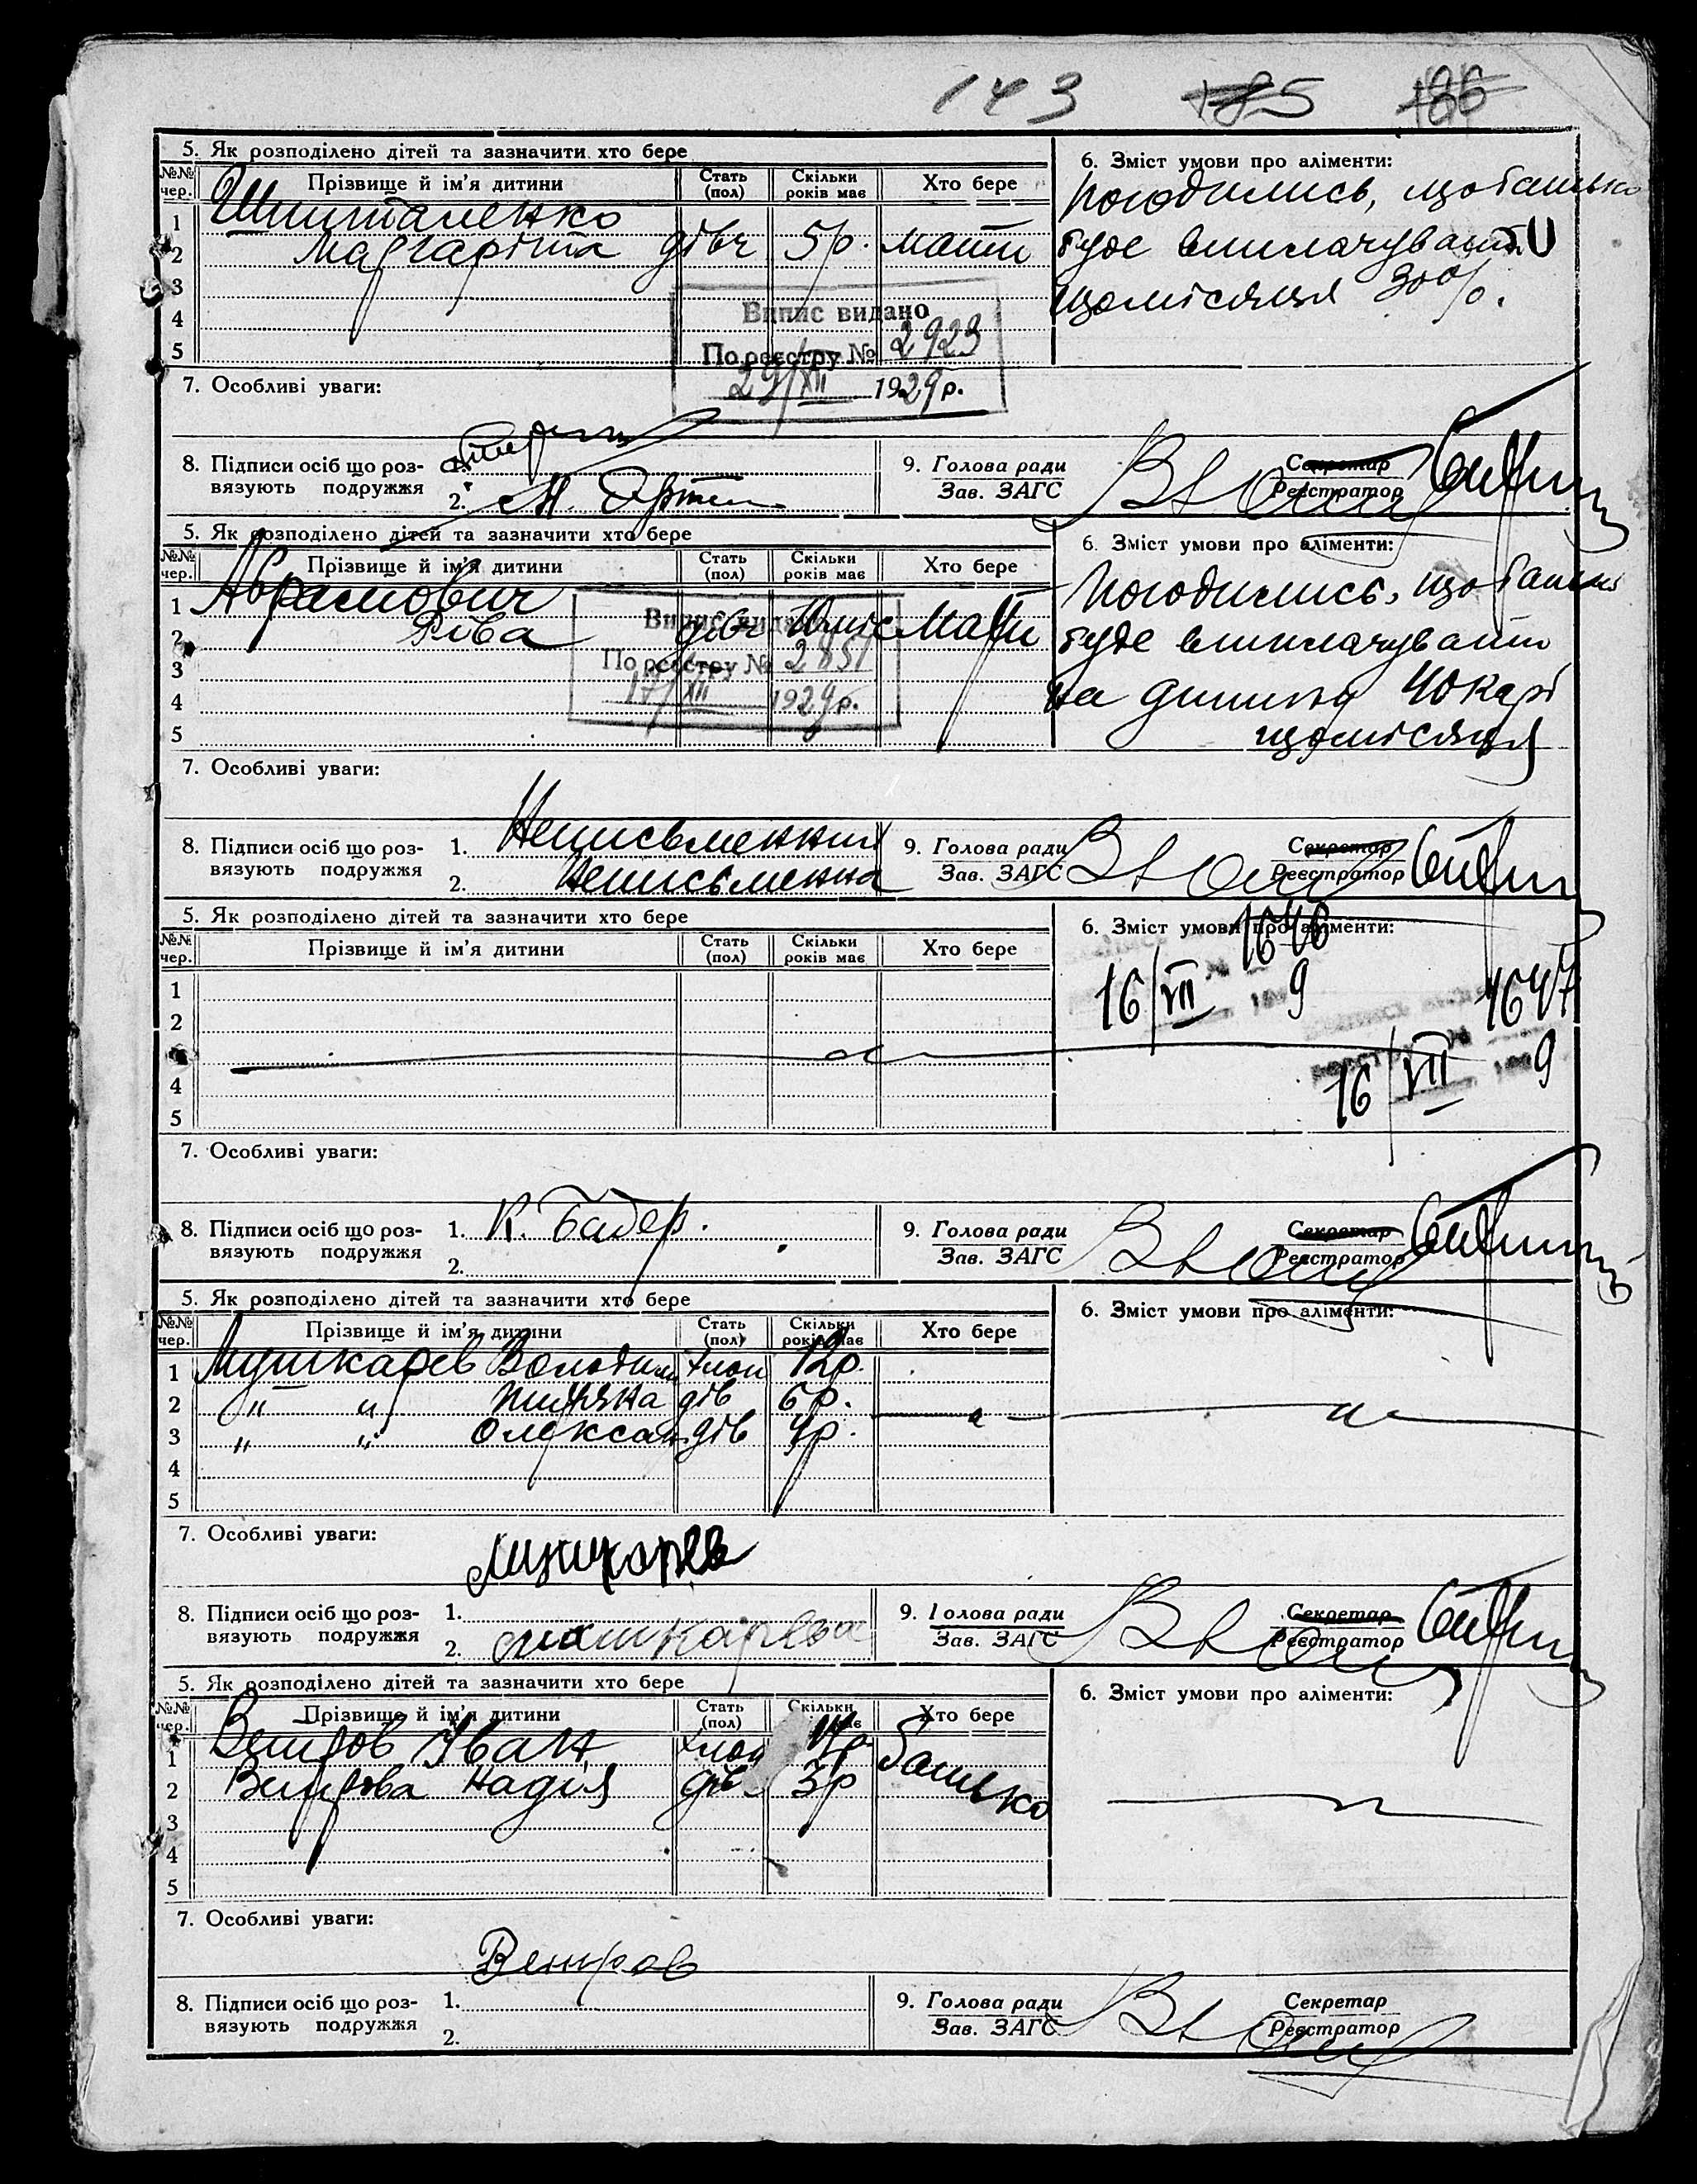 143 185 186
5. Як розподілено дітей та зазначити хто бере
6. Зміст умови про аліменти:
№№ чер. Прізвище й ім'я дитини Стать (пол) Скільки років має Хто бере
Погодились, що батько
1 Шпиталенко
2 Маргаріта дівч 5 р. мати
буде виплачувати
3
щомісяця 30%.
4
5
Випис видано
По реєстру № 2923
29/XII 1929 р.
7. Особливі уваги:
8. Підписи осіб що роз-
вязують подружжя
1.
2.
9. Голова ради
Зав. ЗАГС
Секретар
Реєстратор
5. Як розподілено дітей та зазначити хто бере
6. Зміст умови про аліменти:
№№ чер. Прізвище й ім'я дитини Стать (пол) Скільки років має Хто бере
Погодились, що батько
1 Абрамович
2 Ріва дівч мати
буде виплачувати
3
на дитину 40 карб
4
щомісяця
5
Випис видано
По реєстру № 2851
17/XII 1929 р.
7. Особливі уваги:
8. Підписи осіб що роз-
вязують подружжя
1. Неписьменний
2. Неписьменна
9. Голова ради
Зав. ЗАГС
Секретар
Реєстратор
5. Як розподілено дітей та зазначити хто бере
6. Зміст умови про аліменти:
№№ чер. Прізвище й ім'я дитини Стать (пол) Скільки років має Хто бере
1646
16/VII 9
1647
16/VII 9
1
2
4
5
7. Особливі уваги:
8. Підписи осіб що роз-
вязують подружжя
1. К. Бадер.
2.
9. Голова ради
Зав. ЗАГС
Секретар
Реєстратор
5. Як розподілено дітей та зазначити хто бере
6. Зміст умови про аліменти:
№№ чер. Прізвище й ім'я дитини Стать (пол) Скільки років має Хто бере
1 Мушкарев Володим хлоп 12р.
2 " " дів 6р.
3 " " Олександ дів 4р.
4
5
7. Особливі уваги:
Мушкарев
8. Підписи осіб що роз-
вязують подружжя
1.
2. Мошкарева
9. Голова ради
Зав. ЗАГС
Секретар
Реєстратор
5. Як розподілено дітей та зазначити хто бере
6. Зміст умови про аліменти:
№№ чер. Прізвище й ім'я дитини Стать (пол) Скільки має Хто бере
1 Ветров Іван хлоп батько
2 Ветрова Надія дів 3р
3
4
5
7. Особливі уваги:
Ветров
8. Підписи осіб що роз-
вязують подружжя
1.
2.
9. Голова ради
Зав. ЗАГС
Секретар
Реєстратор